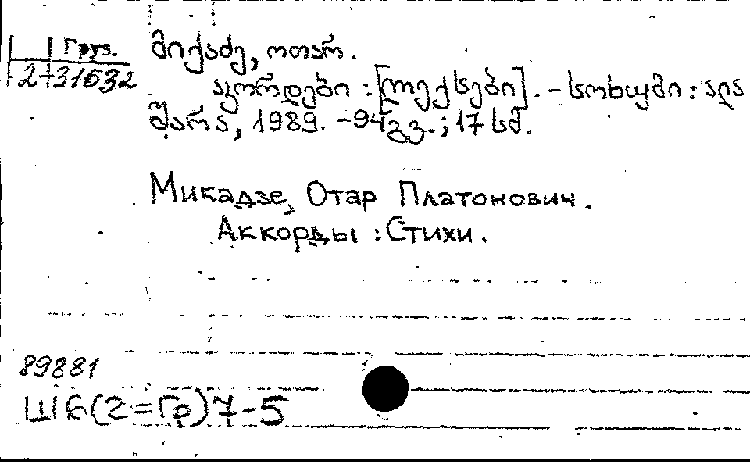 Груз.
2-31632
მიქაძე, ოთარ.
აკორდები : [ლექსები]. - სოხუმი : ალა
შარა, 1989. - 94 გვ. ; 17 სმ.
Микадзе, Отар Платонович.
Аккорды : Стихи.
89881
Ш6(2=Гр)7-5